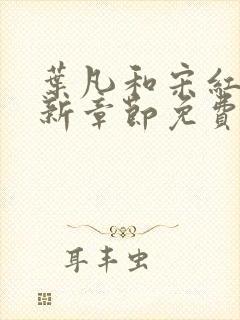 葉凡和宋紅
新章節免費
耳丰虫